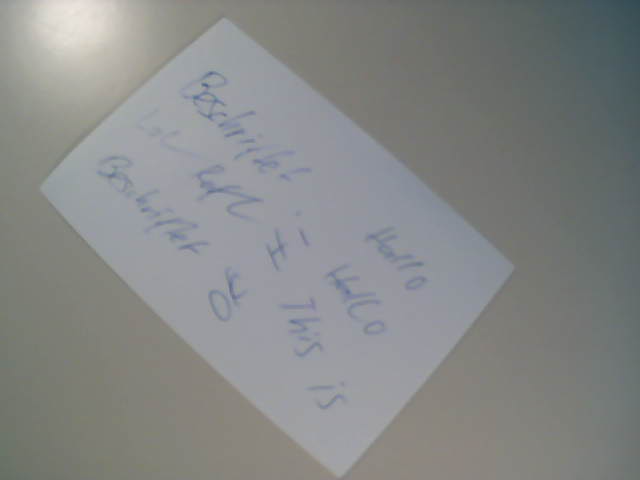 Beschriftet :- Hallo
Lol Rofl I Hallo
Beschriftet This is